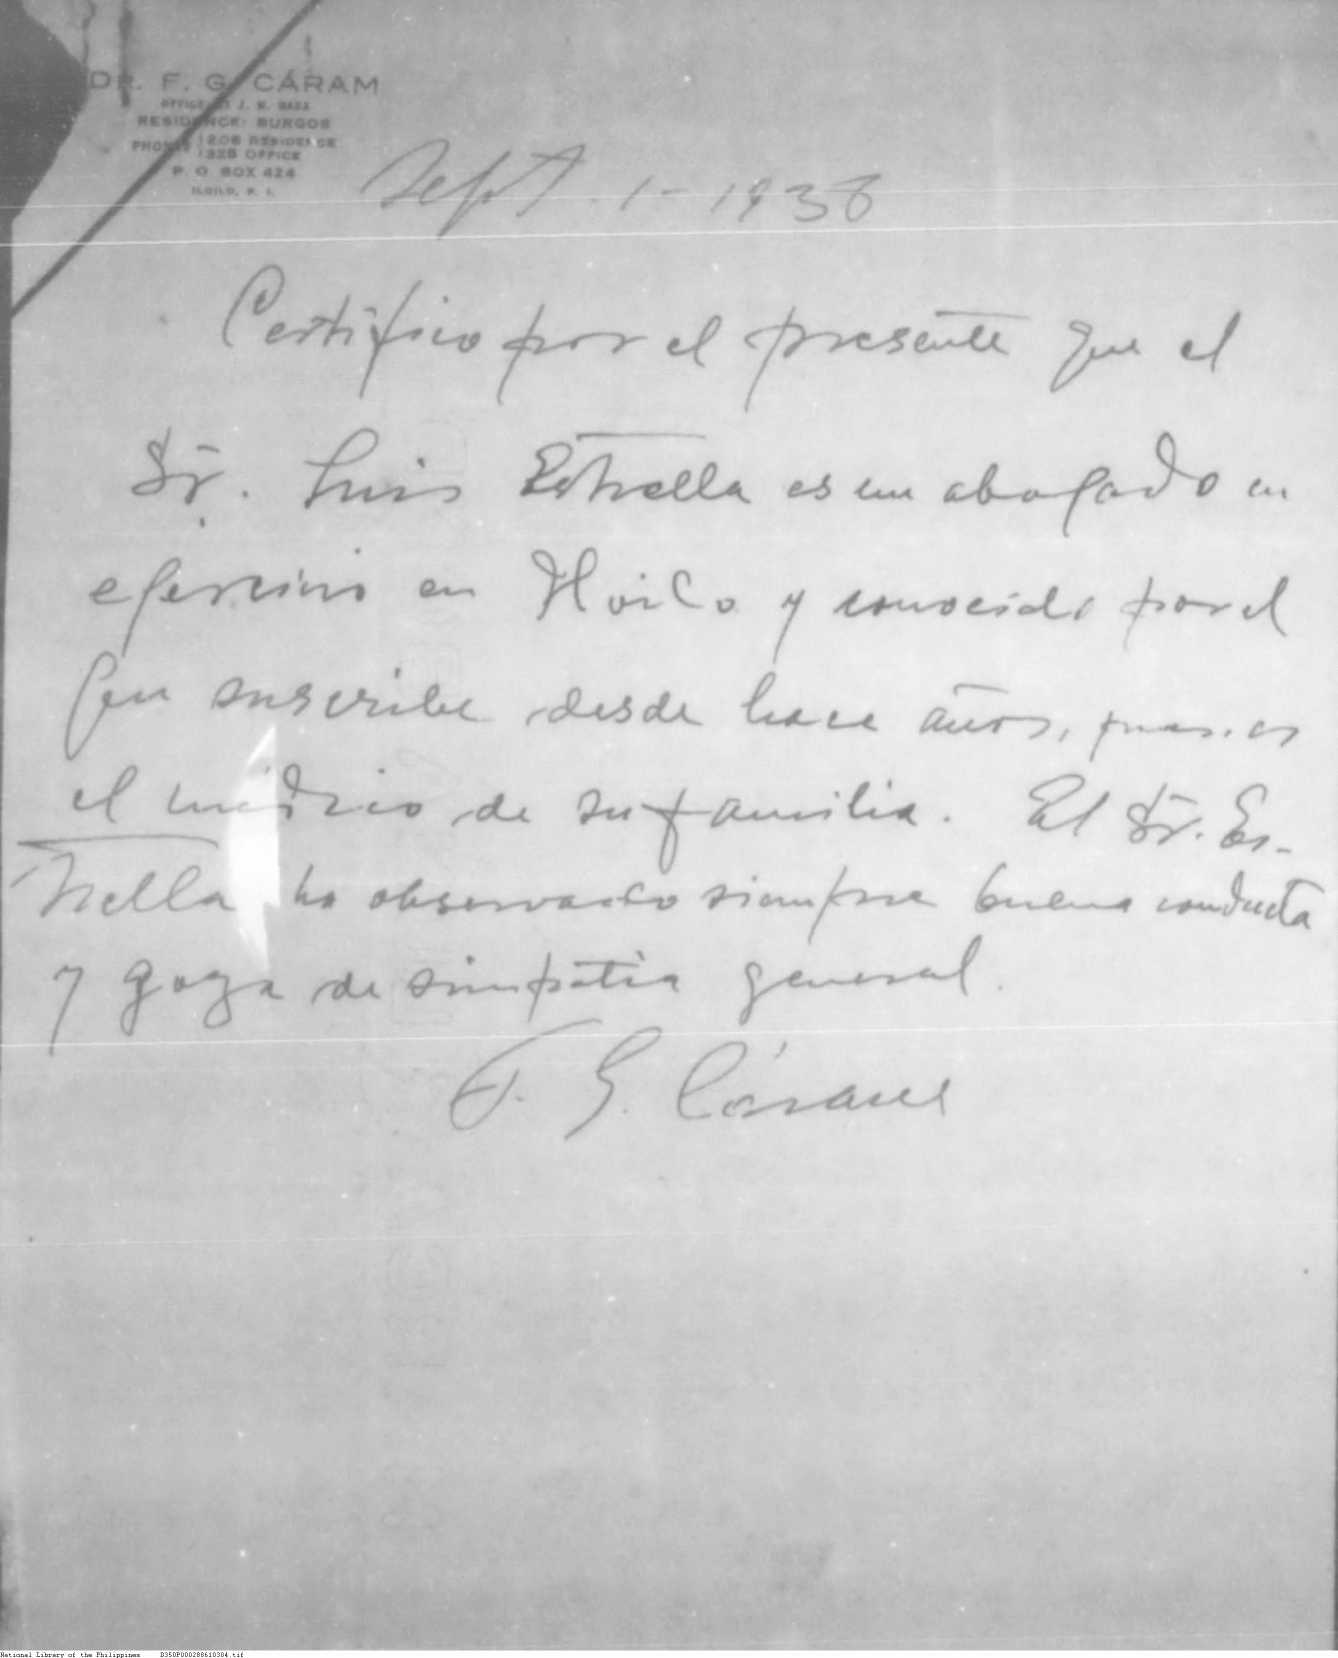 DR. F. G. CÁRAM
OFFICE: J. M. BASA
RESIDENCE: BURGOS
PHONES 1206 RESIDENCE
1325 OFFICE
P. O. BOX 424
ILOILO, P. I.
Sept. 1 - 1938
Certifico por el presente que el
Sr. Luis Estrella es un abogado en
ejercicio en Iloilo y conocido por el
que suscribe desde hace años, pues es
el médico de su familia. El Sr. Es-
trella ha observado siempre buena conducta
y goza de simpatia general.
F. G. Cáram
National Library of the Philippines D350P000288610304.tif